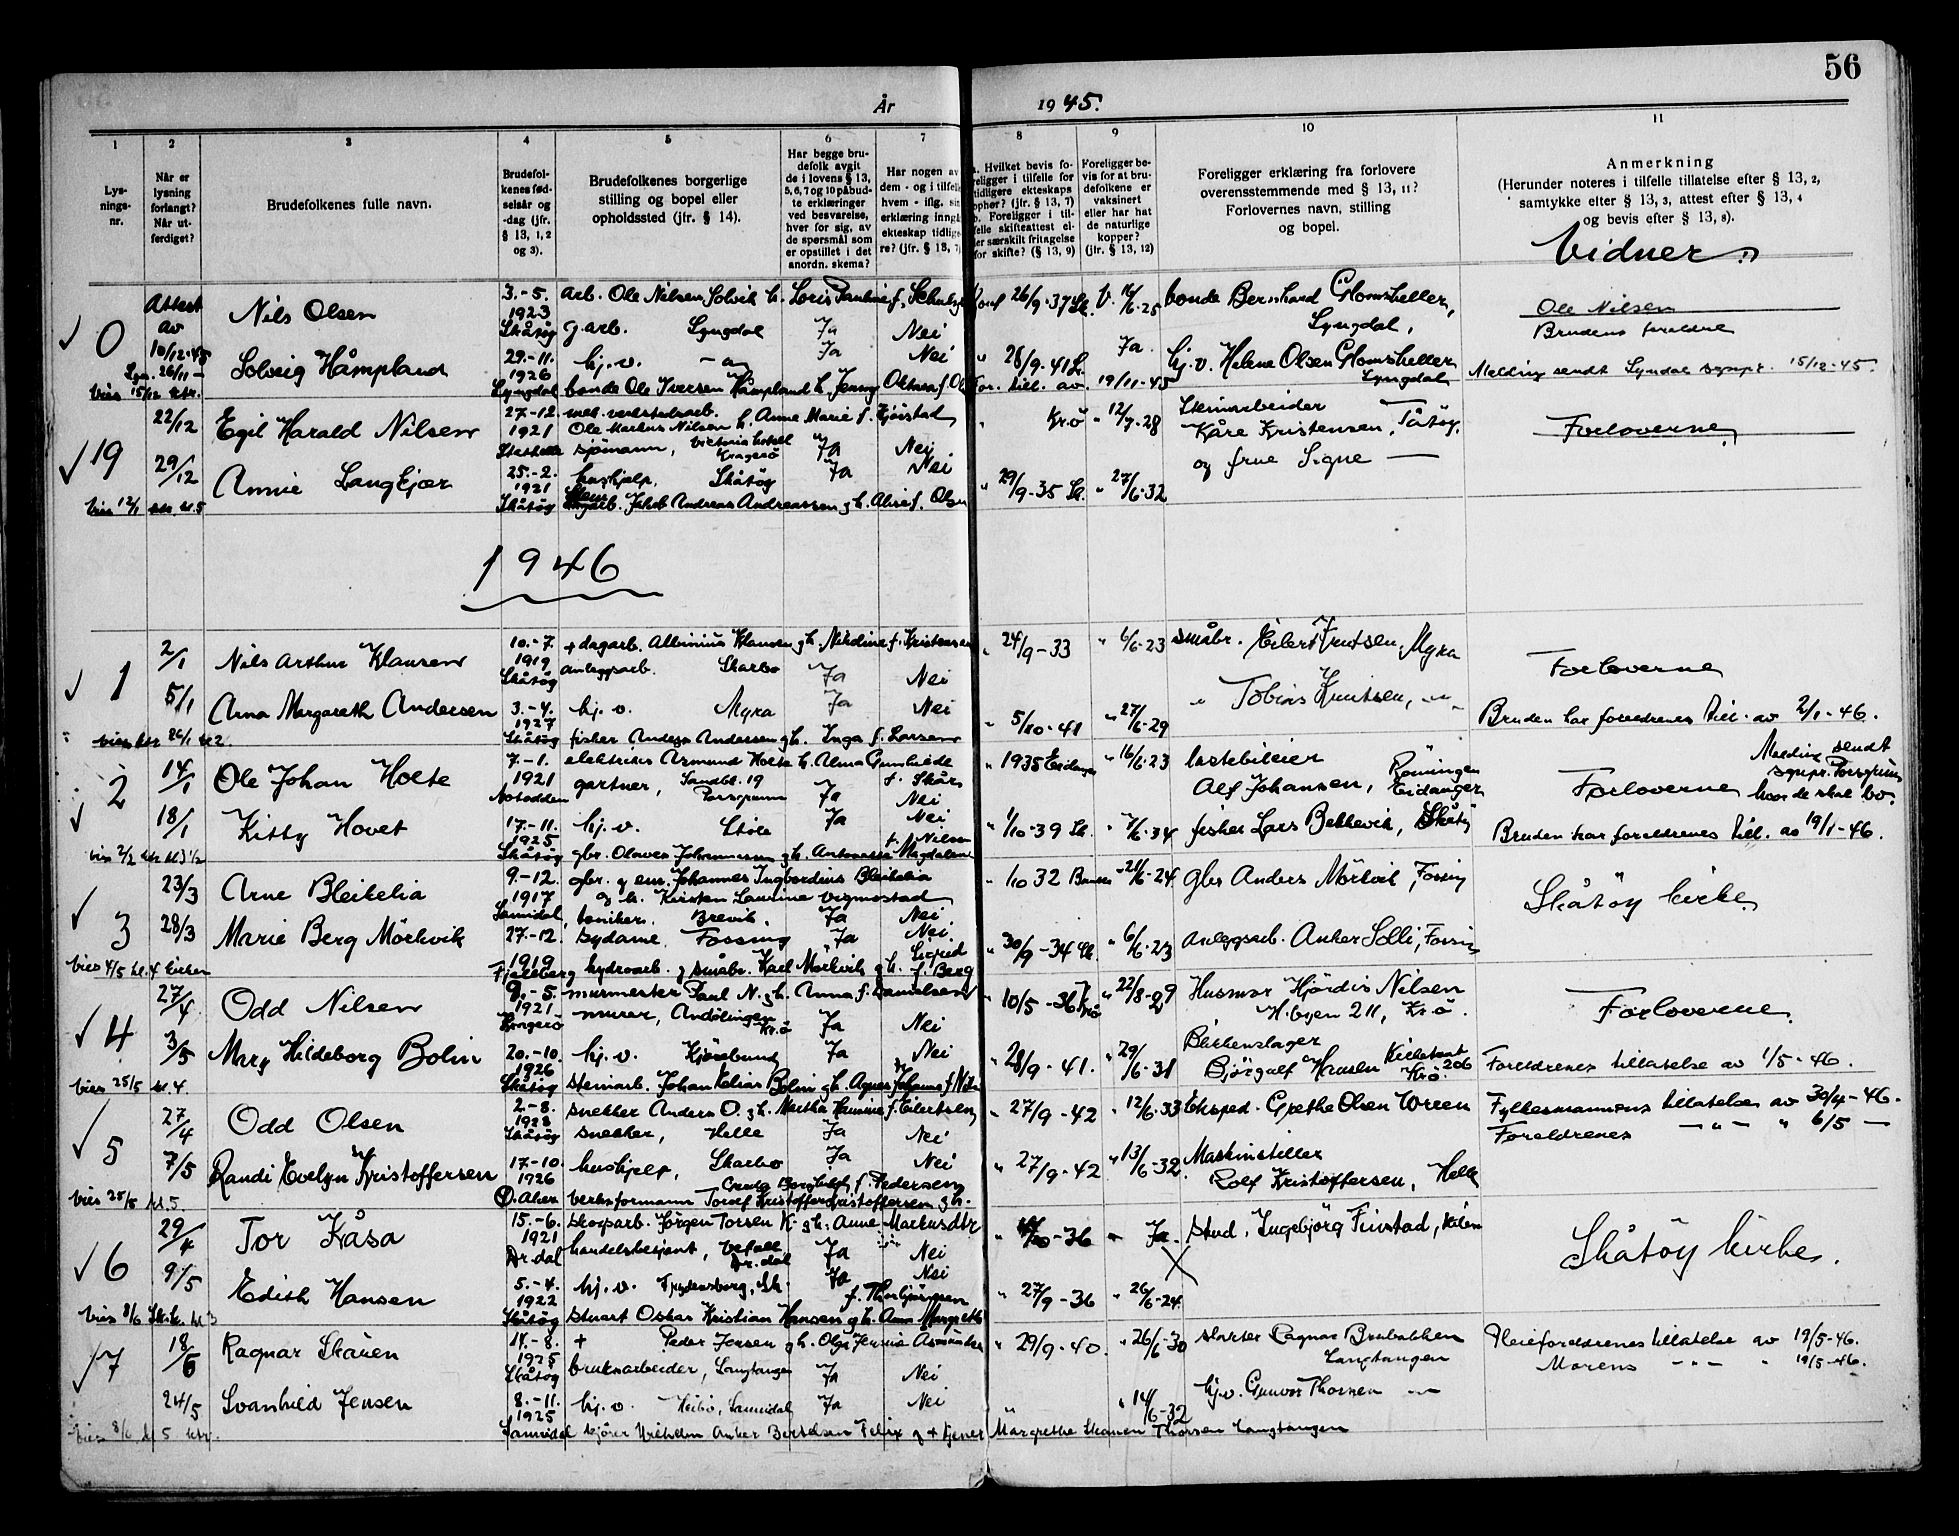 56
År 1945.
1 2 3 4 5 6 7 8 9 10 11
Lysnings-nr.
Når er lysning forlangt? Når utferdiget?
Brudefolkenes fulle navn.
Brudefolkenes fødselsår og -dag (jfr. § 13, 1, 2 og 3).
Brudefolkenes borgerlige stilling og bopel eller opholdssted (jfr. § 14).
Har begge brudefolk avgitt de i lovens § 13, 5, 6, 7 og 10 påbudte erklæringer ved besvarelse, hver for sig, av de spørsmål som er opstillet i det anordn. skema?
Har nogen av dem - og i tilfelle hvem - iflg. sin erklæring inngått ekteskap tidligere? (jfr. § 13, 7)
a. Hvilket bevis foreligger i tilfelle for tidligere ekteskaps ophør? (jfr. § 13, 7) b. Foreligger i tilfelle skifteattest eller særskilt fritagelse for skifte? (§ 13, 9)
Foreligger bevis for at brudefolkene er vaksinert eller har hat de naturlige kopper? (jfr. § 13, 12)
Foreligger erklæring fra forlovere overensstemmende med § 13, 11? Forlovernes navn, stilling og bopel.
Anmerkning
(Herunder noteres i tilfelle tillatelse efter § 13, 2,
samtykke efter § 13, 3, attest efter § 13, 4
og bevis efter § 13, 8).
Vidner
0 Attest av 10/12-45 Lysn. 26/11 Vies 15/12 ktr.
Nils Olsen 3.-5. 1923 Skåtøy arb. Ole Nilsen Solvik h. Loris Pauline f. Schulze
garb. Lyngdal Ja Nei Konf 26/9-37 Sk. V. 16/6-25 bonde Bernhard Glomsheller, Lyngdal,
Ole Nilsen
Brudens foreldre
Solveig Håmpland 29.-11. 1926 Lyngdal hj. v. Ja Nei " 28/9-41 L. Ja. hj. v. Helene Olsen Glomsheller Lyngdal
bonde Ole Iversen Håmpland h. Jenny Oktava f. For. till. av 19/11-45
Melding sendt Lyndal sognpr. 15/12-45.
19 22/12 Egil Harald Nilsen 27-12 1921 mek. verkstedsarb. Ole Markus Nilsen h. Anne Marie f. Gjørstad
Stathelle sjømann, Victoria hotell Kragerø Ja Nei " Krø " 12/7-28 Steinarbeider Kåre Kristensen, Tåtøy,
og frue Signe
Forloverne
29/12 Annie Langkjær 25.-2. 1921 Skåtøy hushjelp, Skåtøy Ja Nei " 29/9-35 Sk. " 27/6-32
Jakob Andreas Andreassen g h. Alise f. Olsen
Vies 12/1 ktr. kl. 5
1946
1 2/1 Nils Arthur Klausen 10.-7. 1919 Skåtøy + dagarb. Albinius Klausen g h. Nikoline f. Kristensen
anleggsarb. Skarbo Ja Nei " 24/9-33 " 6/6-23 småbr. Eilert Knutsen, Myra
Forloverne
5/1 Arna Margareth Andersen 3.-4. 1927 Skåtøy hj. v. Myra Ja Nei " 5/10-41 " 27/6-29 " Tobias Knutsen, -"-
Bruden har foreldrenes till. av 2/1-46.
vies ktr 26/1 kl 2. fisker Anders Andersen g h. Inga f. Larsen
2 14/1 Ole Johan Holte 7.-1. 1921 Notodden elektriker Armund Holte h. Alma Gunhilde f. Skår
gartner, Sandbl. 19 Porsgrunn Ja Nei " 1935 Eidanger " 16/6-23 lastebileier Alf Johansen, Røningen Eidanger
Forloverne Melding sendt sognpr. Porsgrunn hvor de skal bo.
18/1 Kitty Hovet 17.-11. 1925 Skåtøy hj. v. Støle Ja Nei " 1/10-39 Sk. " 7/6-34 fisker Lars Bekkevik, Skåtøy
Bruden har foreldrenes till. av 19/1-46.
vies 2/2 ktr kl 3 1/2 gbr. Olaves Johannessen g h. Antonette Magdalene f. Nilsen
3 23/3 Arne Bleikelia 9.-12. 1917 Sannidal gbr. g em. Johannes Ingvordius Bleikelia
g h. Kirsten Laurine Vigmostad
tømker. Brevik. Ja Nei " 1032 " 21/6-24 gbr Anders Mörkvik, Fossing
Skåtøy kirke
28/3 Marie Berg Mörkvik 27.-12. 1919 Fjellberg sydame. Fossing Ja Nei " 30/9-34 Sk. " 6/6-23 Anleggsarb. Anker Solli, Fossing
Vies 4/5 kl. 4 kirken hydroarb. g småbr. Karl Mörkvik g h. Sigfrid f. Berg
4 27/4 Odd Nilsen 9.-5. 1921 Kragerø murmester Paul N. g h. Anna f. Danielsen
murer, Andølingen Krø Ja Nei " 10/5-36 Krø " 22/8-29 Husmor Hjördis Nilsen H.byen 211, Krø.
Forloverne
3/5 Mary Hildeborg Bolin 20.-10. 1926 Skåtøy hj. v. Kjøsebund Ja Nei " 28/9-41. " 29/6-31 Blikkenslager Bjørgulf Hansen Kirketomt 206 Krø.
Foreldrenes tillatelse av 1/5-46.
Vies 25/5 kl. 4. steinarb. Johan Kelius Bolin g h. Agnes Johanne f. Nilsen
5 27/4 Odd Olsen 2.-8. 1923 Skåtøy snekker Anders O. g h. Martha Hamine f. Eilertsen
snekker, Helle Ja Nei " 27/9-42 " 12/6-33 Eksped. Grethe Olsen Wreen
Fylkesmannens tillatelse av 30/4-46.
Foreldrenes -"- " 6/5 -
7/5 Randi Evelyn Kristoffersen 17.-10. 1926 Ø. Aker hushjelp, Skarbo Ja Nei " 27/9-42 " 13/6-32. Maskinstiller Rolf Kristoffersen, Helle
Vies 25/5 kl. 5. verksformann Torolf Kristoffer Kristoffersen g h. f. Pedersen
6 29/4 Tor Kåsa 15.-6. 1921 Dr.dal skogsarb. Jørgen Torsen K. g h. Anne Markusdtr
handelsbetjent, Vefall Dr.dal Ja Nei -36 " Ja. stud. Ingebjörg Finstad, Kilen
Skåtøy kirke.
9/5 Edith Hansen 5.-4. 1922 Skåtøy hj. v. Frydensborg, Sk. Ja Nei " 27/9-36 " 26/6-24.
Vies 8/6 Sk.k. kl 3 stuert Oskar Kristian Hansen g h. Anna Margrethe f. Thorbjørnsen
7 18/5 Ragnar Skauen 14.-8. 1925 Skåtøy + Peder Jensen g h. Olga Jennie Asmundsen
bruksarbeider, Langtangen Ja Nei " 29/9-40. " 26/6-30 slakter Ragnar Brubakken Langtangen
Pleieforeldrenes tillatelse av 19/5-46.
Morens -"- " 19/5-46.
24/5 Svanhild Jensen 8.-11. 1925 Sannidal hj. v. Heibø, Sannidal Ja Nei " 14/6-32 hj.v. Gunvor Thorsen -"-
Vies 8/6 kl 5 ktr. kjører Vilhelm Anker Bertelsen Felix g + Margrethe Skauen Thorsen Langtangen